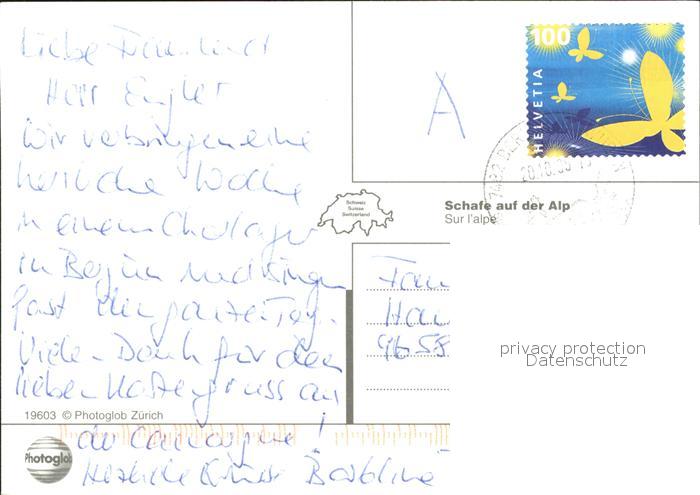 Liebe Frau und
Herr Engler
Wir verbringen eine
herrliche Woche
in einem Chorlager
in Bergün und singen
fast den ganzen Tag.
Vielen Dank für den
lieben Kartengruss aus
der Camargue!
Herzliche Grüsse Barbline
A
100
HELVETIA
20.10.
Schweiz
Suisse
Switzerland
Schafe auf der Alp
Sur l'alpe
Frau
Hau
9658
privacy protection
Datenschutz
19603 © Photoglob Zürich
Photoglob